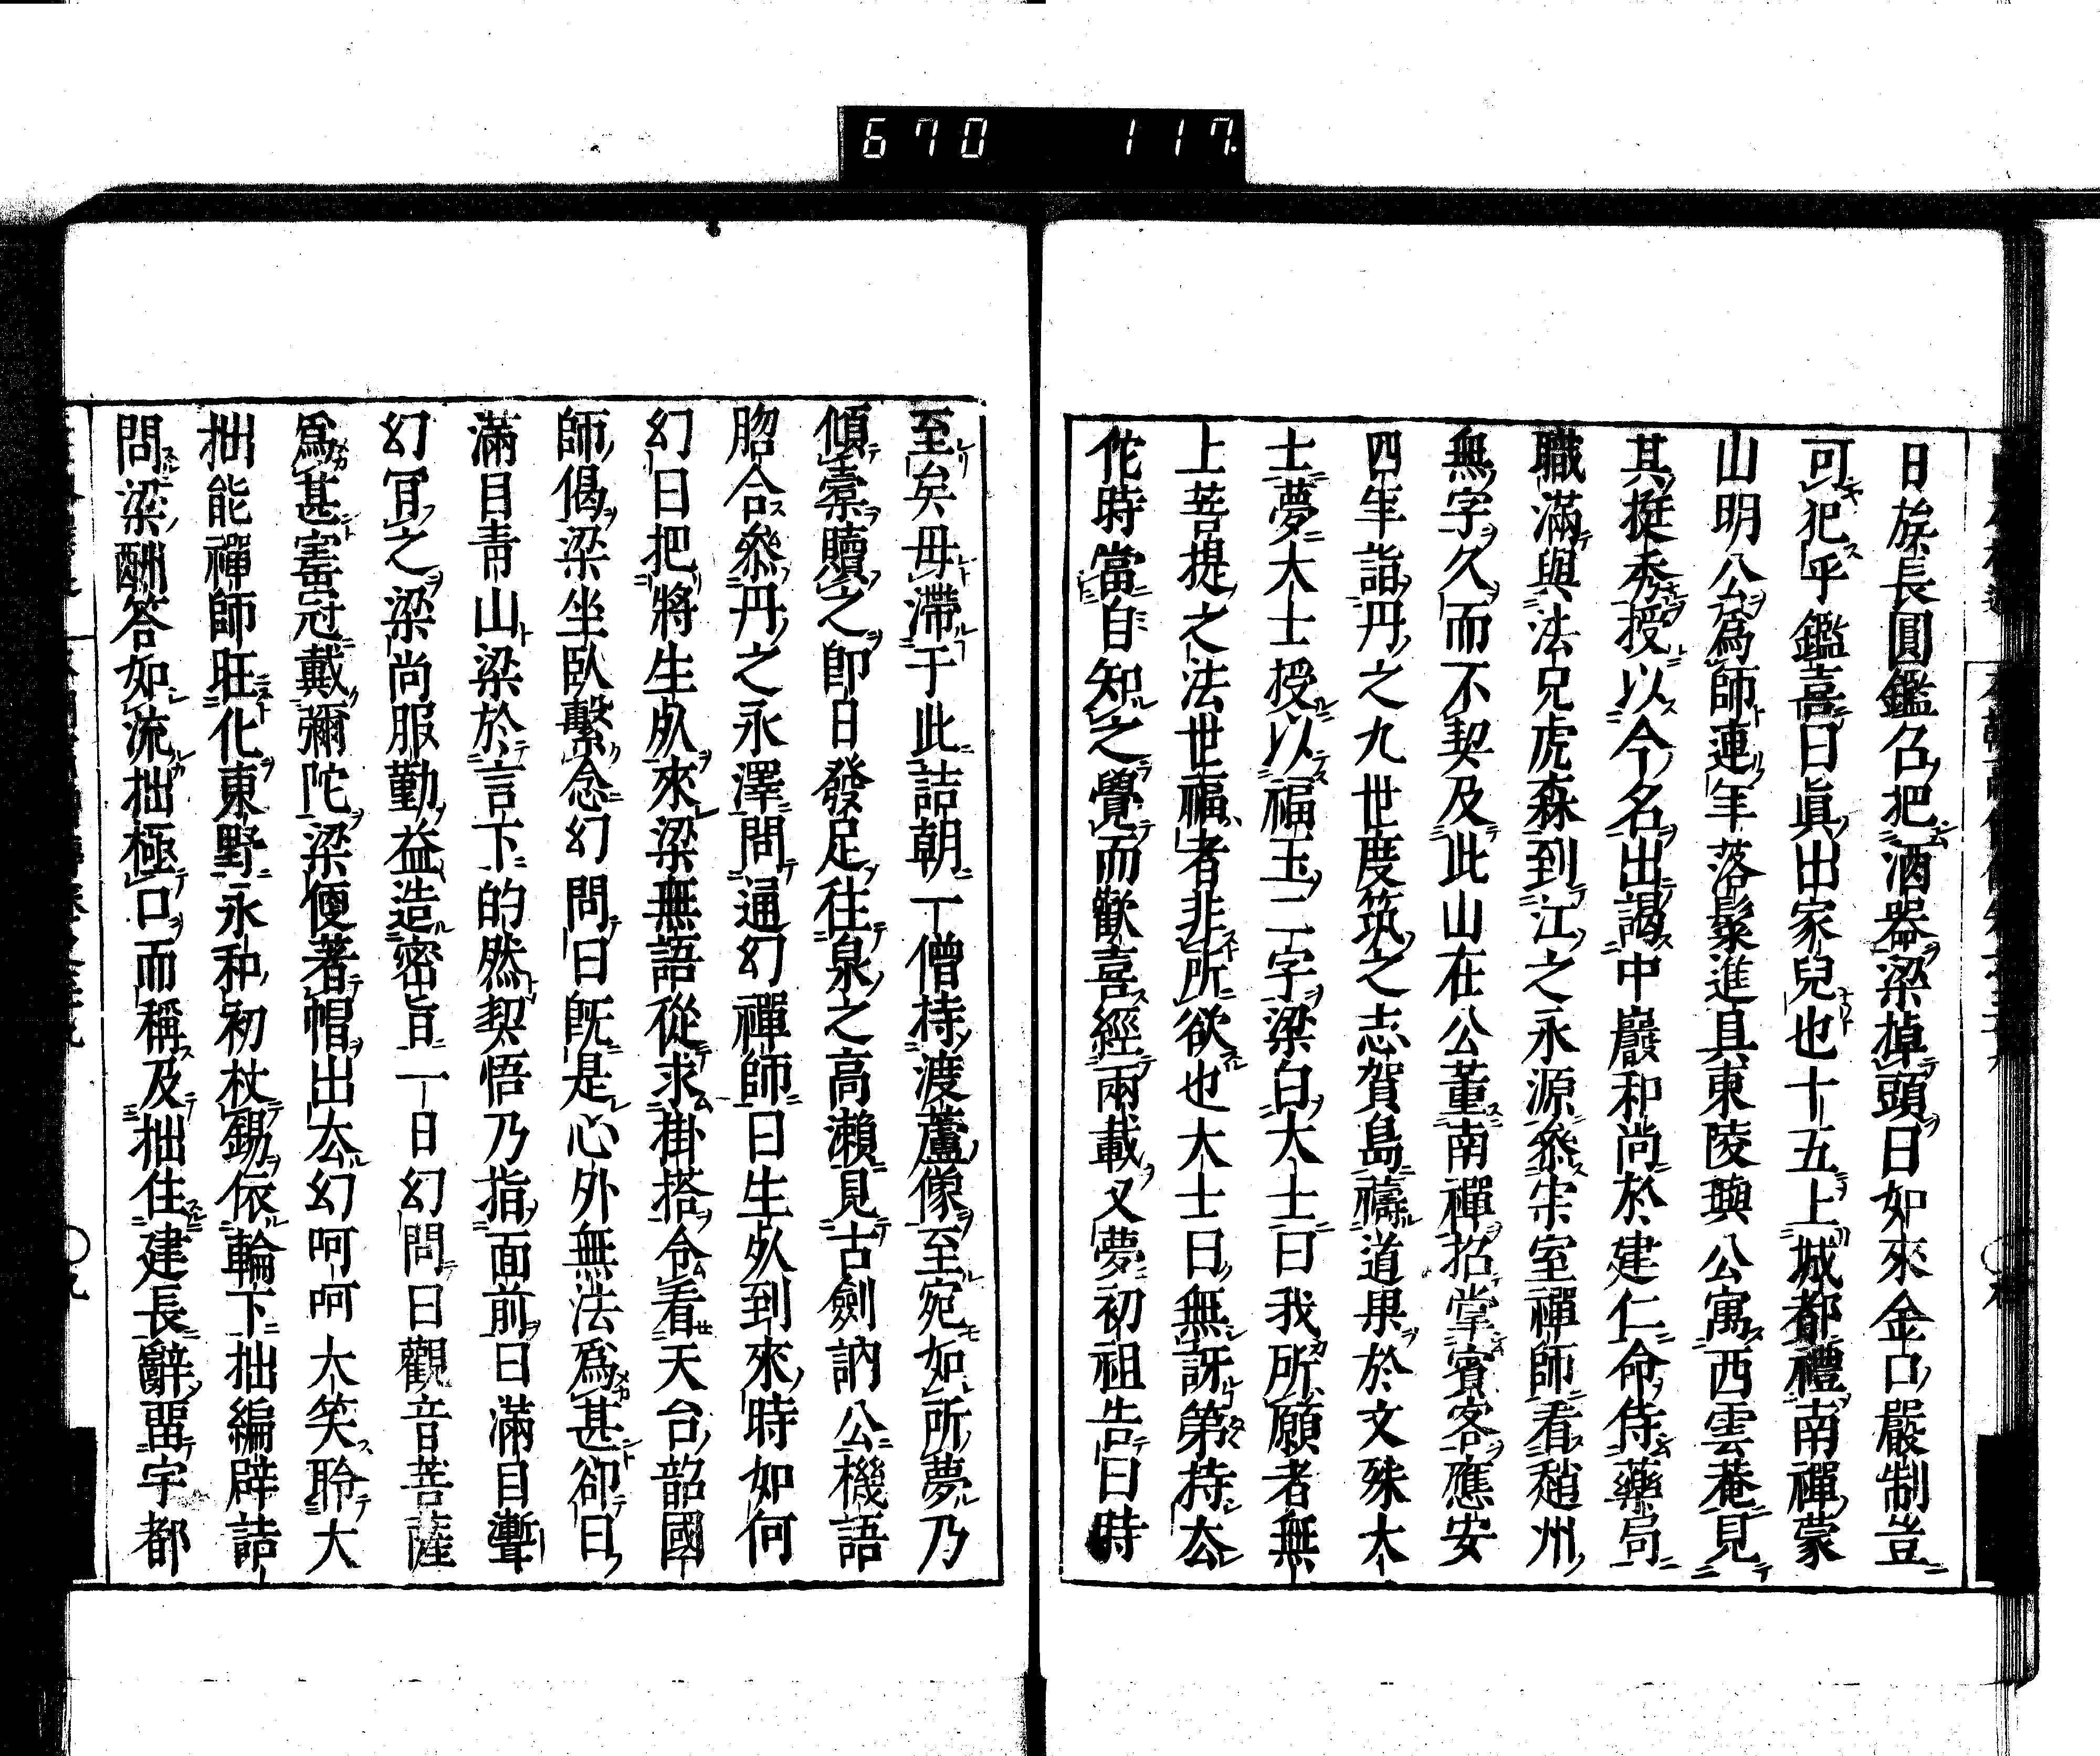 670 117.
日族長圓鑑名把酒器梁掉頭日如來金口嚴制豈
可犯乎鑑喜曰眞出家兒也十五上城都禮南禪蒙
山明公爲師連年落髮進具東陵璵公寓西雲菴見
其挺秀授以今名出謁中巖和尚於建仁命侍藥局
職滿與法兄虎森到江之永源叅宗室禪師看趙州
無字久而不契及此山在公董南禪招掌賓客應安
四年詣丹之九世度筑之志賀島禱道果於文殊大
士夢大士授以福玉二字梁白大士曰我所願者無
上菩提之法世福者非所欲也大士曰無訝第持去
佗時當自知之覺而歡喜經兩載又夢初祖告曰時
至矣毋滯于此詰朝一僧持渡蘆像至宛如所夢乃
傾橐贖之即日發足往泉之高瀨見古劍訥公機語
脗合叅丹之永澤問通幻禪師曰生死到來時如何
幻曰把將生死來梁無語從求掛搭令看天台韶國
師偈梁坐臥繫念幻問曰既是心外無法爲甚卻曰
滿目青山梁於言下的然契悟乃指面前曰滿目聻
幻肎之梁尚服勤益造密旨一日幻問曰觀音菩薩
爲甚寳冠戴彌陀梁便著帽出去幻呵呵大笑聆大
拙能禪師旺化東野永和初杖錫依輪下拙編辟詰
問梁酬答如流拙極口而稱及拙住建長辭畱宇都